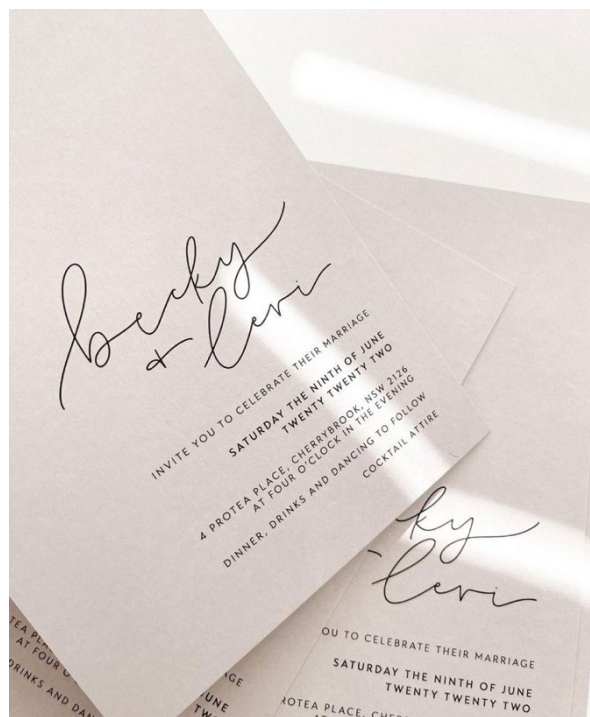 becky
+ levi
INVITE YOU TO CELEBRATE THEIR MARRIAGE
SATURDAY THE NINTH OF JUNE
TWENTY TWENTY TWO
4 PROTEA PLACE, CHERRYBROOK, NSW 2126
AT FOUR O'CLOCK IN THE EVENING
DINNER, DRINKS AND DANCING TO FOLLOW
COCKTAIL ATTIRE
ky
levi
OU TO CELEBRATE THEIR MARRIAGE
SATURDAY THE NINTH OF JUNE
TWENTY TWENTY TWO
ROTEA PLACE, CHERR
TEA PLA
AT FOUR O'
DRINKS AND DAN
AGE
UNE
TW